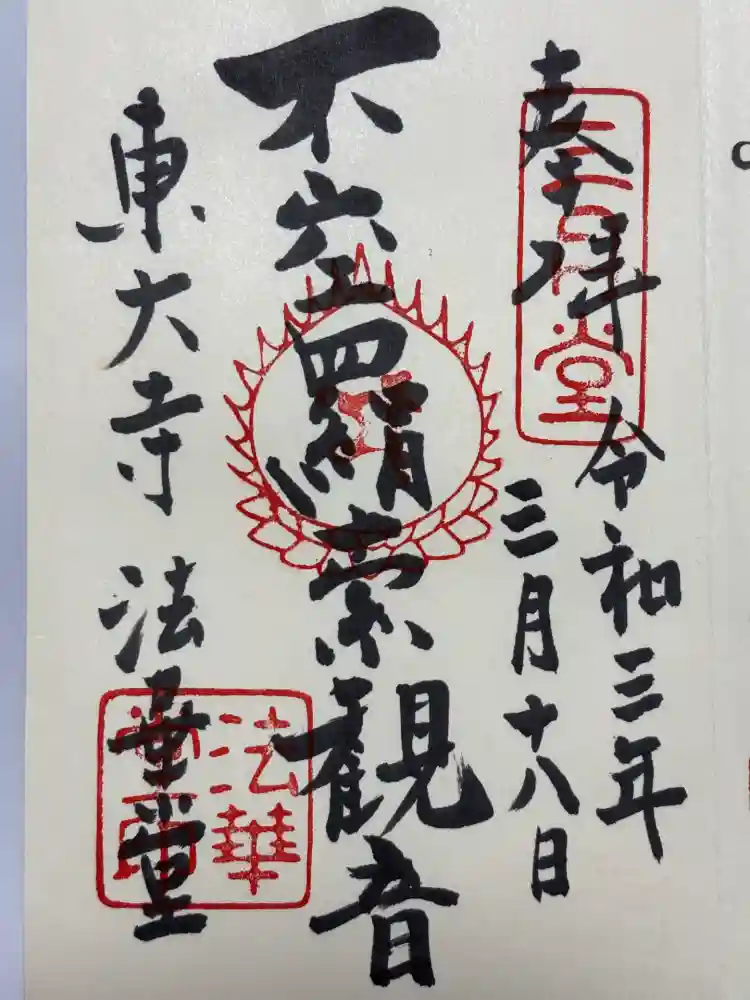 奉拝
三月堂
令和三年
三月十八日
不空羂索観音
東大寺 法華堂
法華堂印